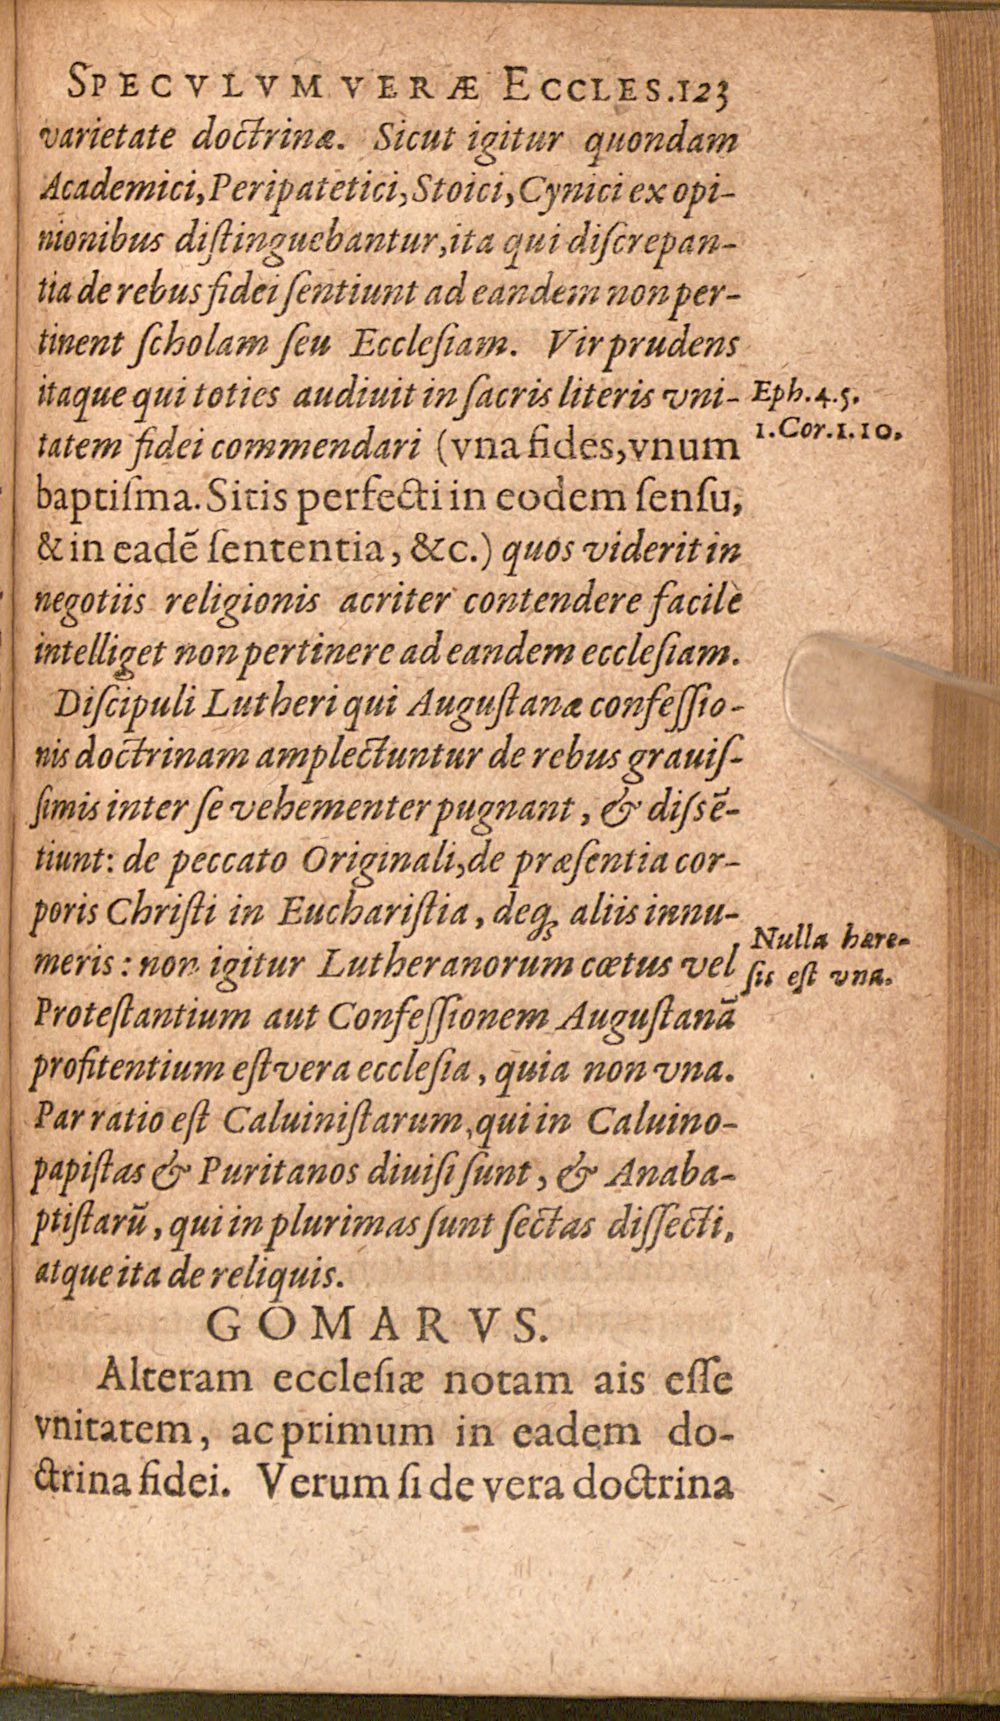 SPECVLVM VERÆ ECCLES.123
varietate doctrinæ. Sicut igitur quondam
Academici, Peripatetici, Stoici, Cynici ex opi-
nionibus diſtinguebantur, ita qui diſcrepan-
tia de rebus fidei ſentiunt ad eandem non per-
tinent ſcholam ſeu Eccleſiam. Vir prudens
itaque qui toties audiuit in ſacris literis vni-
Eph.4.5.
tatem fidei commendari (vna fides, vnum
1.Cor.1.10.
baptiſma. Sitis perfecti in eodem ſenſu,
& in eadē ſententia, &c.) quos viderit in
negotiis religionis acriter contendere facilè
intelliget non pertinere ad eandem eccleſiam.
Diſcipuli Lutheri qui Auguſtanæ confeſſio-
nis doctrinam amplectuntur de rebus grauiſ-
ſimis inter ſe vehementer pugnant, & diſsē-
tiunt: de peccato Originali, de præſentia cor-
poris Chriſti in Euchariſtia, deq; aliis innu-
Nulla hære-
meris: non igitur Lutheranorum cœtus vel
ſis eſt vna.
Proteſtantium aut Confeſſionem Auguſtanā
profitentium eſt vera eccleſia, quia non vna.
Par ratio eſt Caluiniſtarum, qui in Caluino-
papiſtas & Puritanos diuiſi ſunt, & Anaba-
ptiſtarū, qui in plurimas ſunt ſectas diſſecti,
atque ita de reliquis.
GOMARVS.
Alteram eccleſiæ notam ais eſſe
vnitatem, ac primum in eadem do-
ctrina fidei. Verum ſi de vera doctrina